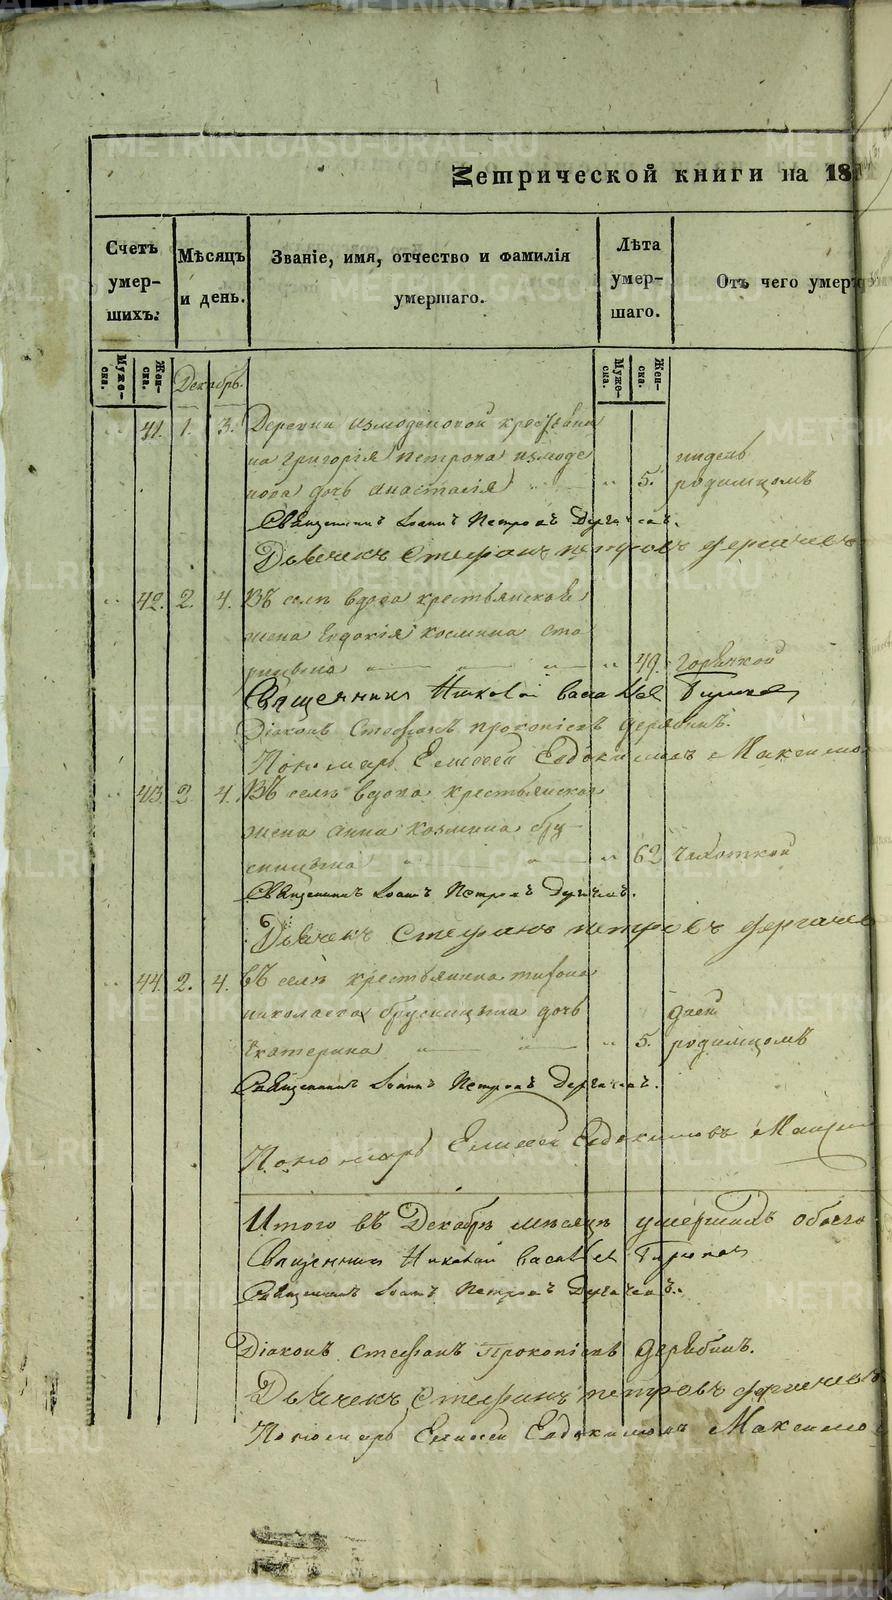 Метрической книги на 18
Счетъ умер-шихъ.
Мѣсяцъ и день.
Званіе, имя, отчество и фамилія умершаго.
Лѣта умер-шаго.
Отъ чего умеръ
Муже-ска.
Жен-ска.
Декабрь.
Муже-ска.
Жен-ска.
41. 1. 3. Деревни Измоденовой крестьяни
на Григорія Петрова Измоде недель
нова дочь Анастасія 5. родимцомъ
Священникъ Іоаннъ Петровъ Дергачевъ.
Дьячекъ Стефанъ Петровъ Дергачевъ
42. 2. 4. Въ селѣ вдова крестьянская
жена Евдокія Космина Ста
рицына 49. горячкой
Священникъ Николай Васильевъ
Діаконъ Стефанъ Прокопіевъ Дерябинъ.
Пономарь Елисей Евдокимовъ Максимо
43. 2 4. Въ селѣ вдова крестьянская
жена Анна Козмина Бру
сницына 62 чахоткой
Священникъ Іоаннъ Петровъ Дергачевъ.
Дьячекъ Стефанъ Петровъ Дергачев
44. 2. 4. Въ селѣ крестьянина Тихона
Николаева Брусницына дочь дней
Екатерина 5. родимцомъ
Священникъ Іоаннъ Петровъ Дергачевъ.
Пономарь Елисей Евдокимовъ Макси
Итого въ Декабрѣ мѣсяцѣ умершихъ обоего
Священникъ Николай Васильев
Священникъ Іоаннъ Петровъ Дергачевъ.
Діаконъ Стефанъ Прокопіевъ Дерябинъ.
Дьячекъ Стефанъ Петровъ Дергачевъ
Пономарь Елисей Евдокимовъ Максимо
METRIKI.GASO-URAL.RU